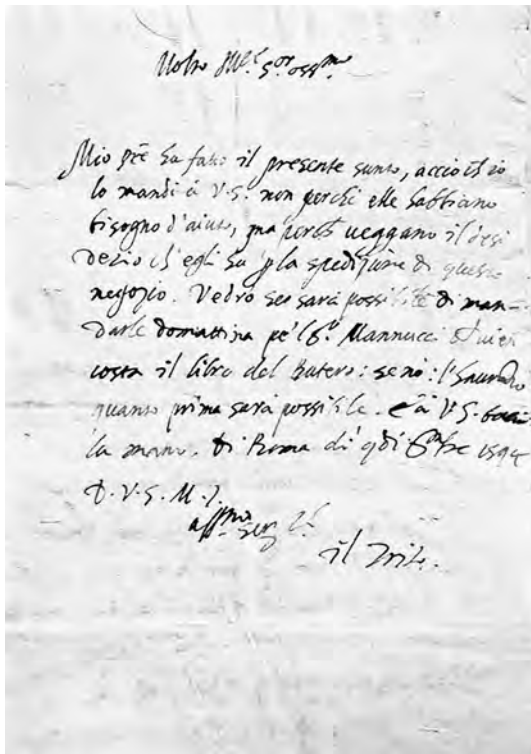 Molto Mag.ce s.or oss.mo
Mio p̃re ha fatto il presente sunto, accio ch'io
lo mandi à V.S. non perche elle habbiano
bisogno d'aiuto, ma perch̃ ueggano il desi
derio ch'egli ha p̃ la speditione di questo
negozio. Vedrò se sarà possibile di man-
darle domattina pe'l S.r Mannucci
costà il libro del Butero: se nò: l'haurà
quanto prima sarà possibile. E à V.S. bacio
la mano. Di Roma di 9 di
D.V.S.M.
aff.mo ser.
il